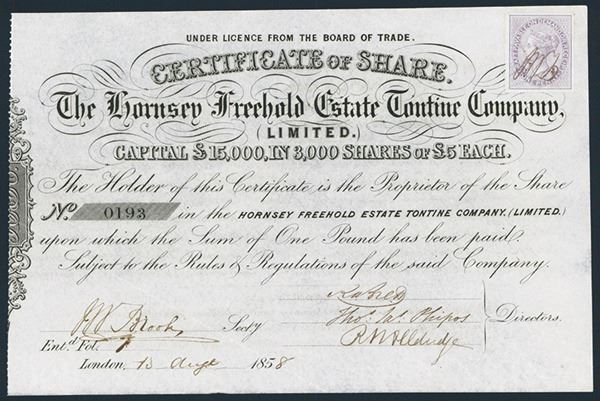 UNDER LICENCE FROM THE BOARD OF TRADE.
CERTIFICATE OF SHARE.
The Hornsey Freehold Estate Tontine Company,
(LIMITED.)
CAPITAL £15,000, IN 3,000 SHARES OF £5 EACH.
The Holder of this Certificate is the Proprietor of the Share
No 0193 in the HORNSEY FREEHOLD ESTATE TONTINE COMPANY, (LIMITED.)
upon which the Sum of One Pound has been paid.
Subject to the Rules & Regulations of the said Company.
Brook Secty
Thos. Directors.
Entd. Fol.
London, 13 Augt 1858